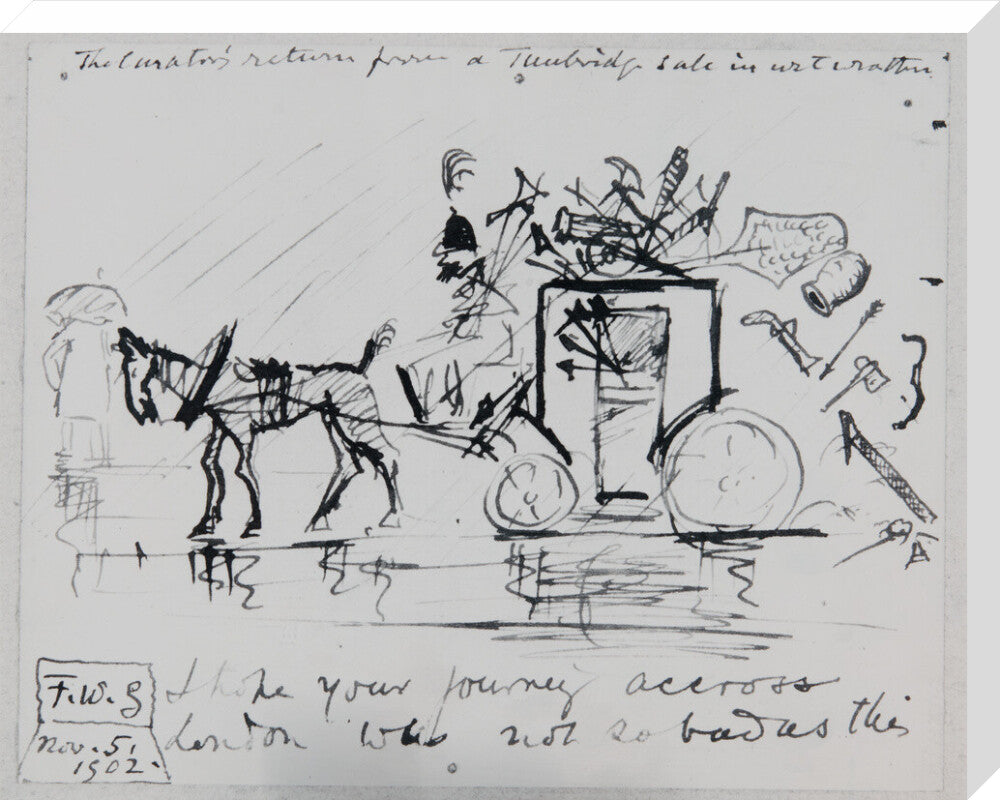 The Curator's return from a Tunbridge sale in wet weather
I hope your journey accross
London was not so bad as this
F.W.G
Nov. 5.
1902.